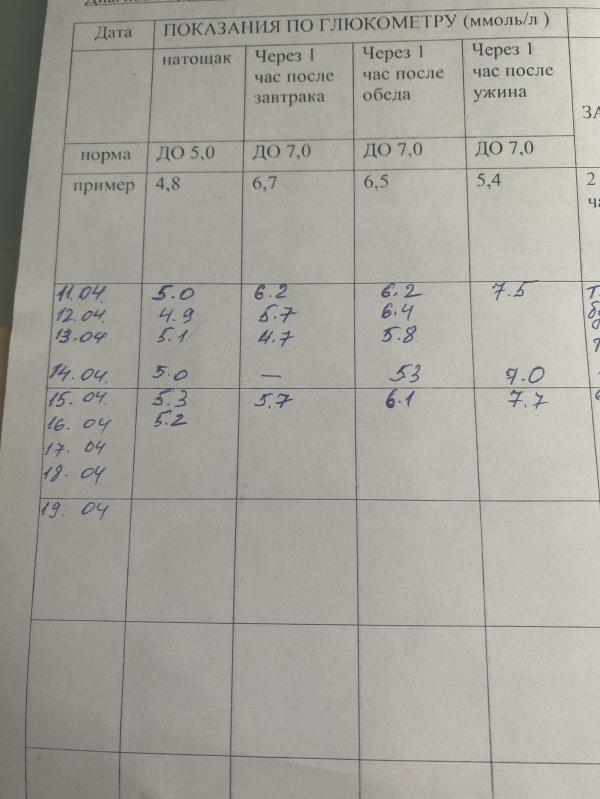 Дата ПОКАЗАНИЯ ПО ГЛЮКОМЕТРУ (ммоль/л )
натощак Через 1 час после завтрака Через 1 час после обеда Через 1 час после ужина
ЗА
норма ДО 5,0 ДО 7,0 ДО 7,0 ДО 7,0
пример 4,8 6,7 6,5 5,4 2
11.04. 5.0 6.2 6.2 7.5
12.04. 4.9 5.7 6.4
13.04 5.1 4.7 5.8
14.04. 5.0 — 53 7.0
15.04. 5.3 5.7 6.1 7.7
16.04 5.2
17.04
18.04
19.04